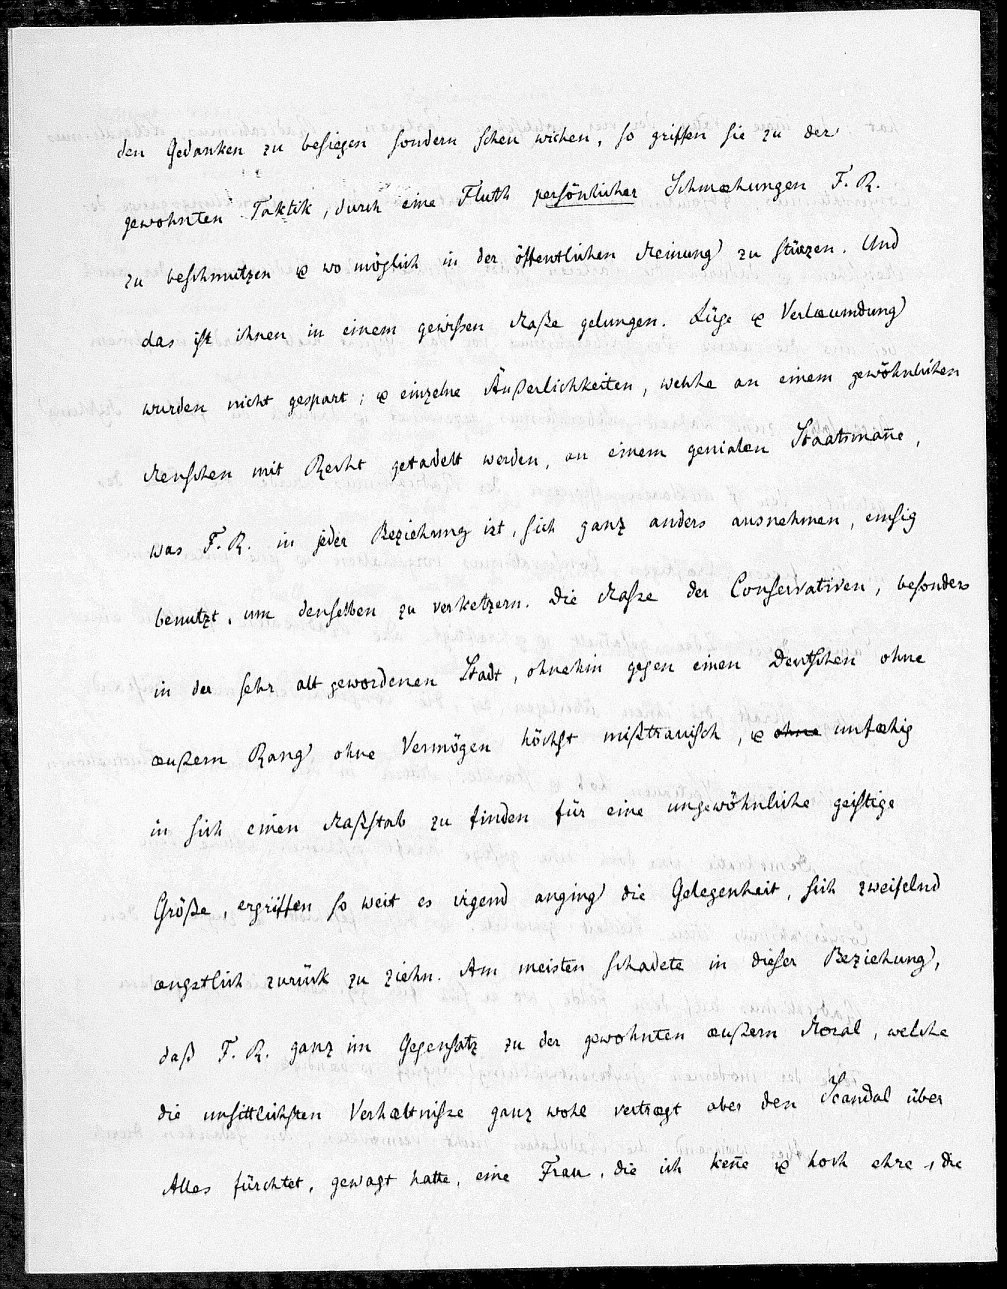 den Gedanken zu besiegen sondern schen wichen, so griffen sie zu der
gewohnten Taktik, durch eine Fluth persönlicher Schmæhungen F. R.
zu beschmutzen & wo möglich in der öffentlichen Meinung zu stürzen. Und
das ist ihnen in einem gewissen Maße gelungen. Lüge & Verlæumdung
wurden nicht gespart; & einzelne Äußerlichkeiten, welche an einem gewöhnlichen
Menschen mit Recht getadelt werden, an einem genialen Staatsmañe,
was F. R. in jeder Beziehung ist, sich ganz anders ausnehmen, emsig
benutzt, um denselben zu verketzern. Die Masse der Conservativen, besonders
in der sehr alt gewordenen Stadt, ohnehin gegen einen Deutschen ohne
æußern Rang ohne Vermögen höchst mißtrauisch, & ohne unfæhig
in sich einen Maßstab zu finden für eine ungewöhnliche geistige
Größe, ergriffen so weit es irgend anging die Gelegenheit, sich zweifelnd
ængstlich zurück zu ziehn. Am meisten schadete in dieser Beziehung,
daß F. R. ganz im Gegensatz zu der gewohnten æußern Moral, welche
die unsittlichsten Verhæltnisse ganz wohl vertrægt aber den Scandal über
Alles fürchtet, gewagt hatte, eine Frau, die ich keñe & hoch ehre, die